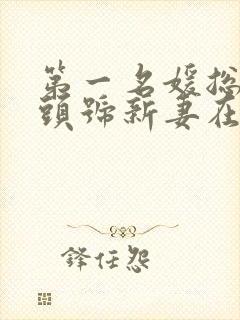 第一名媛总
頭號新妻在
鋒任怨